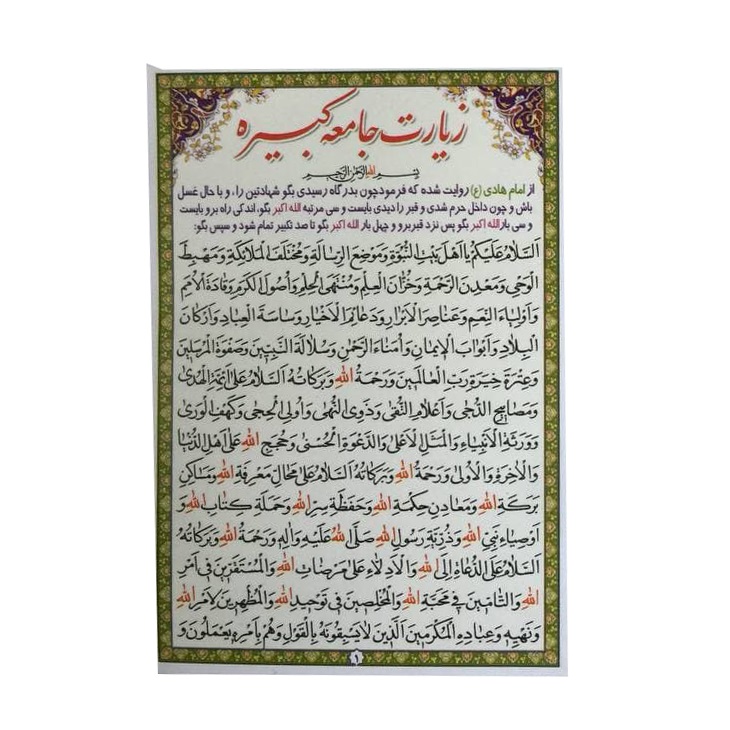 زیارت جامعه کبیره
بسم الله الرحمن الرحیم
از امام هادی (ع) روایت شده که فرمود چون بدرگاه رسیدی بگو شهادتین را، و با حال غسل
باش و چون داخل حرم شدی و قبر را دیدی بایست و سی مرتبه الله اکبر بگو، اندکی راه برو بایست
و سی بار الله اکبر بگو پس نزد قبر برو و چهل بار الله اکبر بگو تا صد تکبیر تمام شود و سپس بگو:
اَلسَّلامُ عَلَيْكُمْ يا اَهْلَ بَيْتِ النُّبُوَّةِ وَمَوْضِعَ الرِّسالَةِ وَمُخْتَلَفَ الْمَلائِكَةِ وَمَهْبِطَ
الْوَحْىِ وَمَعْدِنَ الرَّحْمَةِ وَخُزَّانَ الْعِلْمِ وَمُنْتَهَى الْحِلْمِ وَاُصُولَ الْكَرَمِ وَقادَةَ الْاُمَمِ
وَاَوْلِياءَ النِّعَمِ وَعَناصِرَ الْاَبْرارِ وَدَعائِمَ الْاَخْيارِ وَساسَةَ الْعِبادِ وَاَرْكانَ
الْبِلادِ وَاَبْوابَ الْايمانِ وَاُمَناءَ الرَّحْمنِ وَسُلالَةَ النَّبِيّينَ وَصَفْوَةَ الْمُرْسَلينَ
وَعِتْرَةَ خِيَرَةِ رَبِّ الْعالَمينَ وَرَحْمَةُ اللهِ وَبَرَكاتُهُ اَلسَّلامُ عَلى اَئِمَّةِ الْهُدى
وَمَصابيحِ الدُّجى وَاَعْلامِ التُّقى وَذَوِى النُّهى وَاُولِى الْحِجى وَكَهْفِ الْوَرى
وَوَرَثَةِ الْاَنْبِياءِ وَالْمَثَلِ الْاَعْلى وَالدَّعْوَةِ الْحُسْنى وَحُجَجِ اللهِ عَلى اَهْلِ الدُّنْيا
وَالْاخِرَةِ وَالْاُولى وَرَحْمَةُ اللهِ وَبَرَكاتُهُ اَلسَّلامُ عَلى مَحالِّ مَعْرِفَةِ اللهِ وَمَساكِنِ
بَرَكَةِ اللهِ وَمَعادِنِ حِكْمَةِ اللهِ وَحَفَظَةِ سِرِّ اللهِ وَحَمَلَةِ كِتابِ اللهِ وَ
اَوْصِياءِ نَبِىِّ اللهِ وَذُرِّيَّةِ رَسُولِ اللهِ صَلَّى اللهُ عَلَيْهِ وَالِهِ وَرَحْمَةُ اللهِ وَبَرَكاتُهُ
اَلسَّلامُ عَلَى الدُّعاةِ اِلَى اللهِ وَالْاَدِلَّاءِ عَلى مَرْضاتِ اللهِ وَالْمُسْتَقِرّينَ فى اَمْرِ
اللهِ وَالتَّامّينَ فى مَحَبَّةِ اللهِ وَالْمُخْلِصينَ فى تَوْحيدِ اللهِ وَالْمُظْهِرينَ لِاَمْرِ اللهِ
وَنَهْيِهِ وَعِبادِهِ الْمُكْرَمينَ الَّذينَ لايَسْبِقُونَهُ بِالْقَوْلِ وَهُمْ بِاَمْرِهِ يَعْمَلُونَ وَ
۱